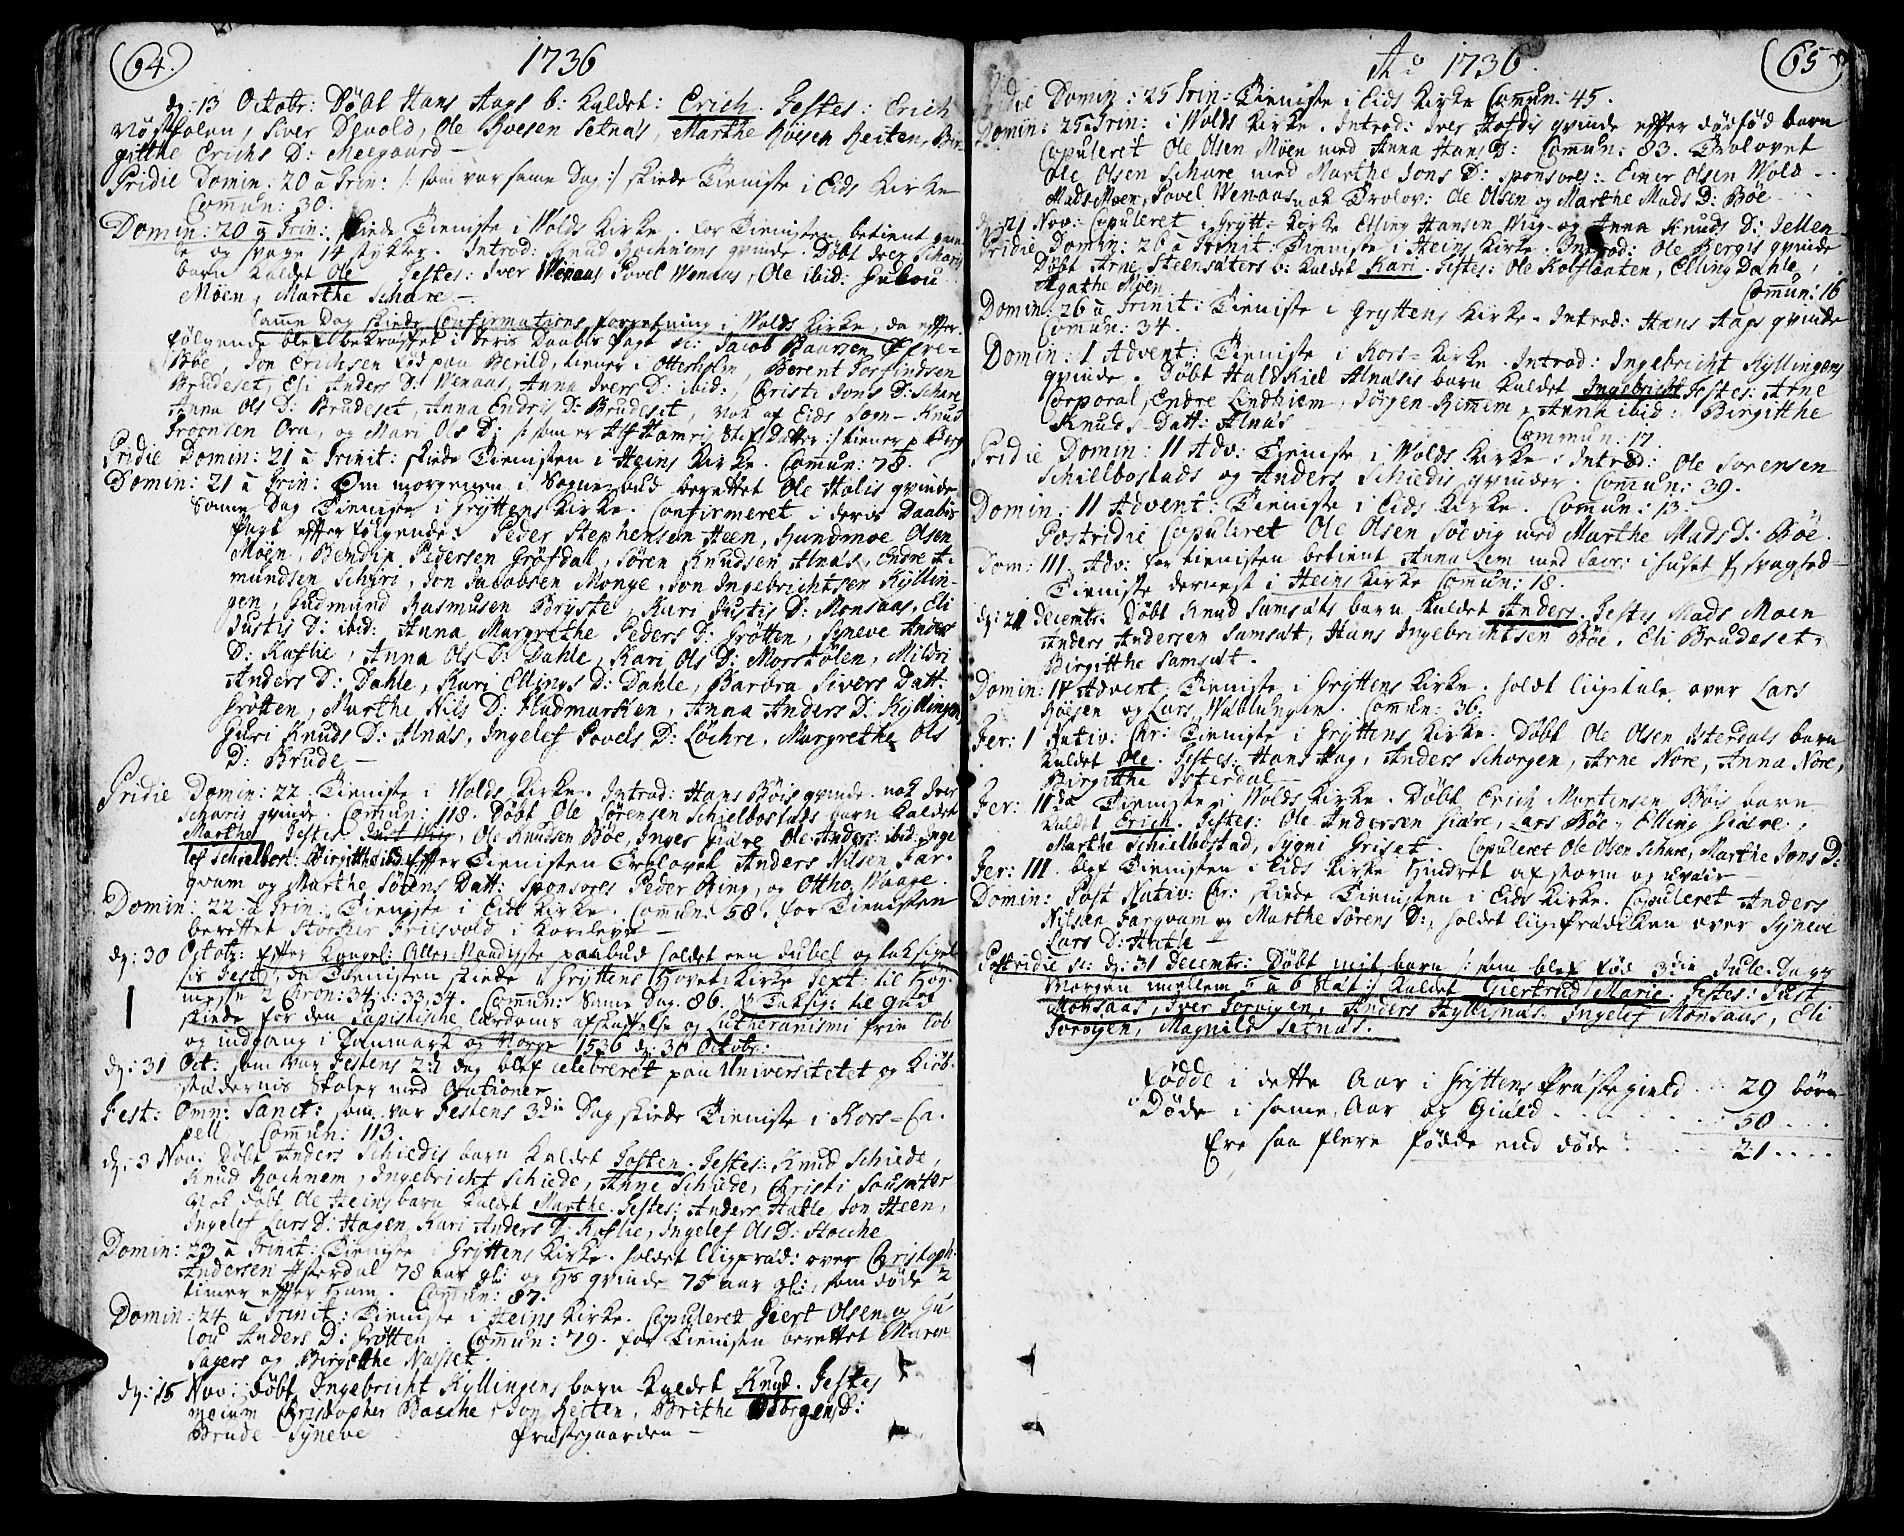 64.
1736
dg: 13 Octobr: Døbt Hans Aags b: kaldet: Erich. Testes: Erich
Vøgstolen, Siver Devold, Ole Roesen Setnæs, Marthe Røisen Reiten, Bir
gitthe Erichs D: Meegaard —
Pridie Domin: 20 a Trin: /: som var same Dag :/ skiede Tieniste i Eids Kirke
Commun: 30.
Domin: 20 a Trin: skiede Tieniste i Wolds Kirke. for Tienisten betient
og svage 14 stykker. Introd: Knud Rochnems qvinde. Døbt Iver Schars
barn kaldet Ole Testes: Iver Wenaas Povel Wenaus, Ole ibid: Gulou
Møen, Marthe Schare —
Samme Dag skiede Confirmations forretning i Wolds Kirke, da effter
følgende blef bekræfftet i deris Daabis Pagt sc: Jacob Baarsen
Bøe, Jon Erichsen fød paa Berild, tiener i Otterholm, Berent Torfindsen
Brudeset, Eli Anders D: Wenaas, Anna Ivers D: ibid:, Christi Jons D: Schare
Anna Ols D: Brudeset, Anna Endris D: Brudeset, Nok af Eids Sogn – Knud
Troensen Ora, og Mari Ols D: /: som er Alf Hamris Stef Datter :/ tiener p
Pridie Domin: 21 a Trinit: skiede Tienisten i Heins Kirke. Commun: 78
Domin: 21 a Trin: Om morgenen i Sognebud berettet Ole Halis qvinde
Samme Dag Tieniste i Gryttens Kirke. Confirmeret i deris Daabis
Pagt effter følgende: Peder Stephensen Heen, Gundmoe Olsen
Moen, Bendix Pedersen Grøfdal, Søren Knudsen Alnæs, Endre A-
mundsen Schiri, Jon Jacobsen Monge, Jon Ingebrichtsen Kylling-
gen, Gudmund Rasmusen Bryste, Kari Justis D: Monsaas, Eli
Justis D: ibid: Anna Margrethe Peders D: Grøtten, Syneve Anders
D: Koflie, Anna Ols D: Dahle, Kari Ols D: Morstølen, Mildri
Anders D: Dahle, Kari Ellings D: Dahle, Barbra Sivers Datt:
Grøtten, Marthe Nils D: Fladmarken, Anna Anders D: Kyllingen
Guri Knuds D: Alnæs, Ingelef Povels D: Løchre, Margrethe Ols
D: Brude —
Pridie Domin: 22. Tieniste i Wolds Kirke. Introd: Hans Bøis qvinde. nok Iver
Scharis qvinde. Commun: 118. Døbt Ole Sørensen Schielbostads barn kaldet
Marthe Testes: Ole Knudsen Bøe, Inger Giære, Ole Anders: ibid: Inge
lef Schielbost: Birgitthe ibid: Effter Tienisten Trolovet Anders Nilsen Far-
qvam og Marthe Sørens Datt: Sponsores Peder Ring, og Ottho Waage
Domin: 22 a Trin: Tieniste i Eids Kirke. Commun: 58. for Tienisten
berettet Storcher Frilsvold i Kornlevn —
dg: 30 Octobr: Effter Kongel: Aller-Naadigste paabud holdet een Jubel og taksigel-
sis Fest, da Tienisten skiede i Gryttens Hovet Kirke Text: til Høg-
messe 2 Chron: 34: 33, 34. Commun: Same Dag. 86. NB Taksig: til Gud
skiede for den Papistiske lærdoms afskaffelse og Lutheranismi frie løb
og indgang i Danmark og Norge 1536 dg: 30 Octobr:
dg: 31 Oct: som var Festens 2: dag blef celebreret paa Universitetet og Kiøb-
stædernis Skoler med Orationer
Fest: Omn: Sanct: som var Festens 3die Dag skiede Tieniste i Kors-Ca-
pell Commun: 113.
dg: 3 Nov. Døbt Anders Schiedis barn kaldet Josten. Testes: Knud Schiede,
Knud Rochnem, Ingebricht Schiede, Anne Schiede, Christi
Nok døbt Ole Heins barn kaldet Marthe. Testes: Anders Hatle, Jon Heen,
Ingelef Lars D: Hagen, Kari Anders D: Koflie, Ingelef Ols D: Hoeche
Domin: 23 a Trinit: Tieniste i Gryttens Kirke. holdet liigpræd: over Christoph
Andersen Isterdal 78 aar gl: og Hs qvinde 75 aar gl:, som døde 2
timer effter Ham. Commun: 87.
Domin: 24 a Trinit: Tieniste i Heins Kirke. Copuleret Siert Olsen og Gu-
lou Anders D: Grøtten. Commun: 79. for Tienisten berettet Maren
Sagers og Birgitthe Næsset.
dg: 15 Nov: døbt Ingebricht Kyllingens barn kaldet Knud. Testes
Christopher Basche, Jon Reiten, Brithe D:
Brude Syneve Præstegaarden —
Ao 1736.
65
Pridie Domin: 25 Trin: Tieniste i Eids Kirke Commun: 45.
Domin: 25 a Trin: i Wolds Kirke. Introd: Iver Hofdis qvinde effter dødfød barn
Copuleret Ole Olsen Møen med Anna Hans D: Commun: 83. Trolovet
Ole Olsen Schare med Marthe Jons D: Sponsores: Einer Olsen Wold –
Mads Moen, Povel Wenaas nok Trolov: Ole Olsen og Marthe Mads D: Bøe —
dg: 21 Nov: Copuleret i Grytt: Kirke Elling Hansen Wiig og Anna Knuds D: Tellen
Pridie Domin: 26 a Trinit: Tieniste i Heins Kirke. Introd: Ole Bergis qvinde
Døbt Arne Steensæters b: kaldet Kari. Testes: Ole Kolflaaten, Elling Dahle,
Agathe Moen Commun: 16
Domin: 26 a Trinit: Tieniste i Gryttens Kirke. Introd: Hans Aags qvinde
Commun: 34.
Domin: 1 Advent: Tieniste i Kors-Kirke. Introd: Ingebricht Kyllingens
qvinde. Døbt Haldkiel Alnæsis barn kaldet Ingebricht Testes: Arne
Corporal, Endre Lindhiem, Jørgen Rimem, Anna ibid: Birgitthe
Knuds Datt: Alnæs Commun: 17.
Pridie Domin: 11 Adv: Tieniste i Wolds Kirke. Introd: Ole Sørensen
Schielbostads og Anders Schiedis qvinder. Commun: 39.
Domin: 11 Advent: Tieniste i Eids Kirke. Commun: 13.
Postridie Copuleret Ole Olsen Søevig med Marthe Mads D: Bøe.
Dom: 111. Adv: for tienisten betient Anna Lem med Sacr: i huset f svaghed –
Tieniste dernest i Heins Kirke Commun: 18.
dg: 21 Decembr: Døbt Knud Samsøts barn kaldet Anders. Testes Mads Moen
Anders Andersen Samsøt, Hans Ingebrichtsen Bøe, Eli Brudeset,
Birgitthe Samsøt.
Domin: IV Advent Tieniste i Gryttens Kirke. holdt liigtale over Lars
Røesen og Lars Wablungen. Commun: 36.
Fer: 1 Nativ: Chr: Tieniste i Gryttens Kirke. Døbt Ole Olsen Isterdals barn
kaldet Ole. Testes: Hans Aag, Anders Schorgen, Arne Nore, Anna Nore,
Birgitthe Isterdal —
Fer: IIda Tieniste i Wolds Kirke. Døbt Erich Mortensen Bøis barn
kaldet Erich. Testes: Ole Andersen Giære, Lars Bøe, Elling Giære,
Marthe Schielbostad, Sygni Griset. Copuleret Ole Olsen Schare, Marthe Jons D:
Fer: III. blef Tienisten i Eids Kirke Hindret af storm og uvair —
Domin: Post Nativ: Chr: skiede Tienisten i Eids Kirke. Copuleret Anders
Nilsen Farqvam og Marthe Sørens D:, holdet liigprædiken over Syneve
Lars D: Hatle —
Postridie sc: dg: 31 Decembr: Døbt mit barn /: som blef fød 3die Jule-Dags
Morgen imellem 5 a 6 Slæt :/ kaldet Giertrud Marie. Testes: Just
Monsaas, Iver Torvigen, Anders Hyllesnæs, Ingelef Monsaas, Eli
Torvigen, Magnild Setnæs.
Fødde i dette Aar i Gryttens Præstegield . . 29 børn
Døde i same Aar og Gield . . . . 50 . . .
Ere saa flere fødde end døde . . . 21 . . . .